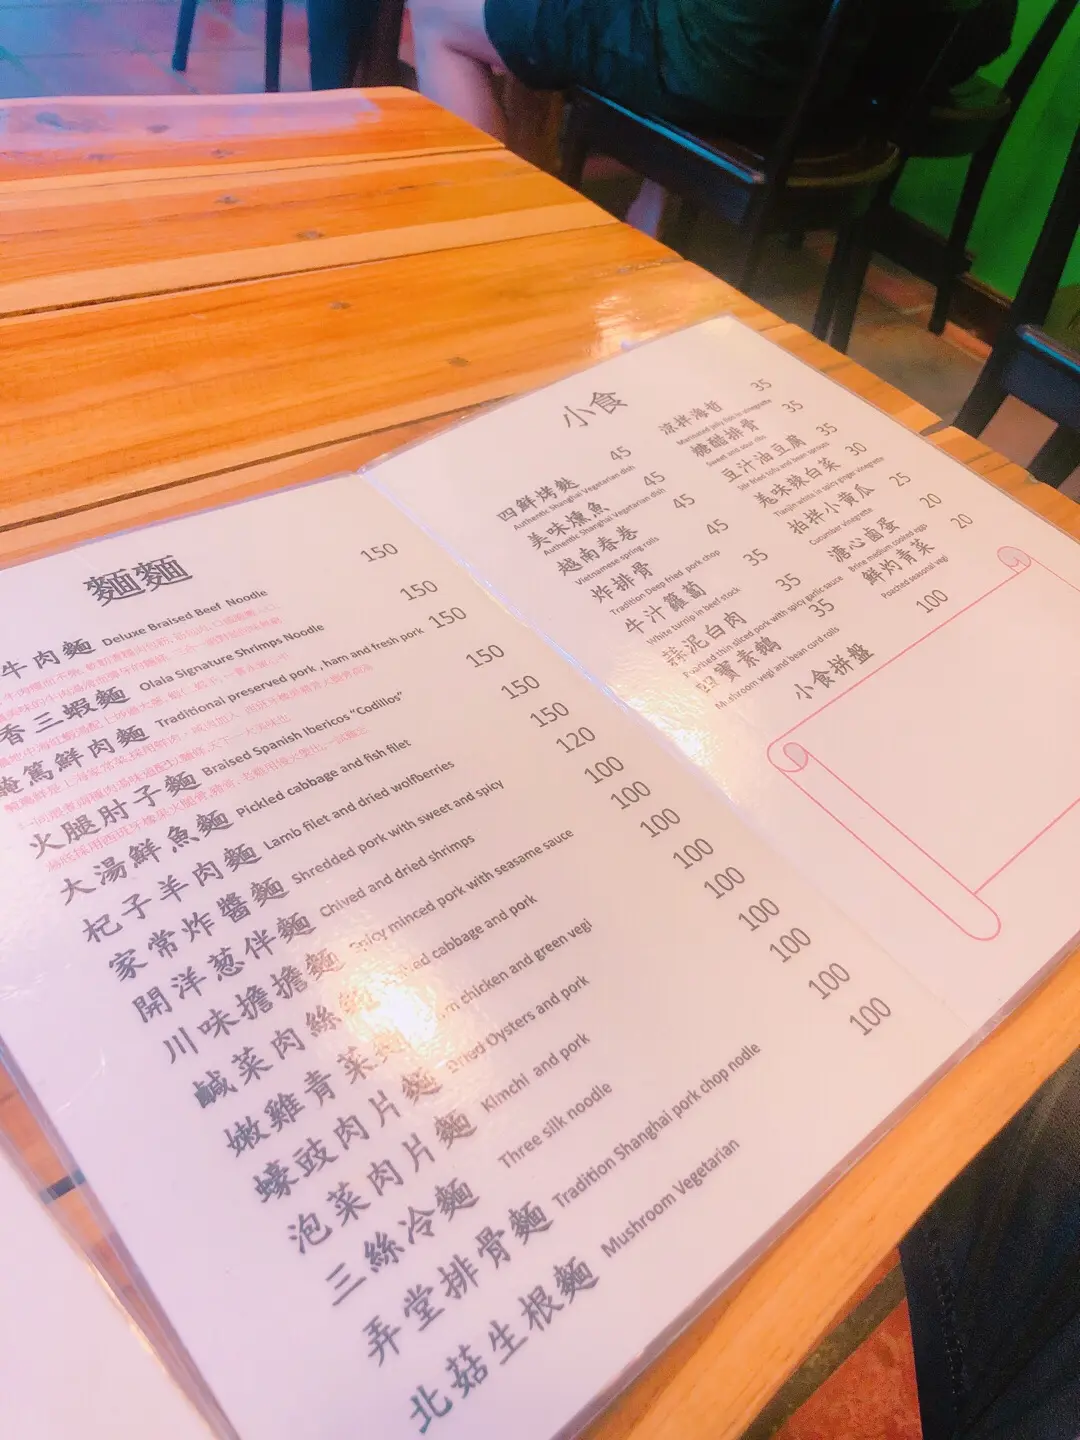 麵麵
牛肉麵 Deluxe Braised Beef Noodle 150
香三蝦麵 Olala Signature Shrimps Noodle 150
醃篤鮮肉麵 Traditional preserved pork , ham and fresh pork 150
火腿肘子麵 Braised Spanish Ibericos "Codillos" 150
大湯鮮魚麵 Pickled cabbage and fish filet 150
杞子羊肉麵 Lamb filet and dried wolfberries 150
家常炸醬麵 Shredded pork with sweet and spicy 120
開洋葱伴麵 Chived and dried shrimps 100
川味擔擔麵 Spicy minced pork with seasame sauce 100
鹹菜肉絲 cabbage and pork 100
嫩雞青菜麵 chicken and green vegi 100
蠔豉肉片麵 Dried Oysters and pork 100
泡菜肉片麵 Kimchi and pork 100
三絲冷麵 Three silk noodle 100
弄堂排骨麵 Tradition Shanghai pork chop nodle 100
北菇生根麵 Mushroom Vegetarian 100
小食
四鮮烤麩 45
Authentic Shanghai Vegetarian dish
美味燻魚 45
Authentic Shanghai Vegetarian dish
越南春卷 45
Vietnamese spring rolls
炸排骨 45
Tradition Deep fried pork chop
牛汁蘿蔔 35
White turnip in beef stock
蒜泥白肉 35
Poached thin sliced pork with spicy garlic sauce
四寶素鵝 35
Mushroom vegi and bean curd rolls
涼拌海哲 35
Marinated jelly fish in vinegrette
糖醋排骨 35
Sweet and sour ribs
豆汁油豆腐 35
Stir fried tofu and bean sprouts
羗味辣白菜 30
Tianjin white in spicy ginger vinegrette
拍拌小黄瓜 25
Cucumber vinegrette
溏心鹵蛋 20
Brine medium cooked eggs
鮮灼青菜 20
Poached seasonal vegi
小食拼盤 100